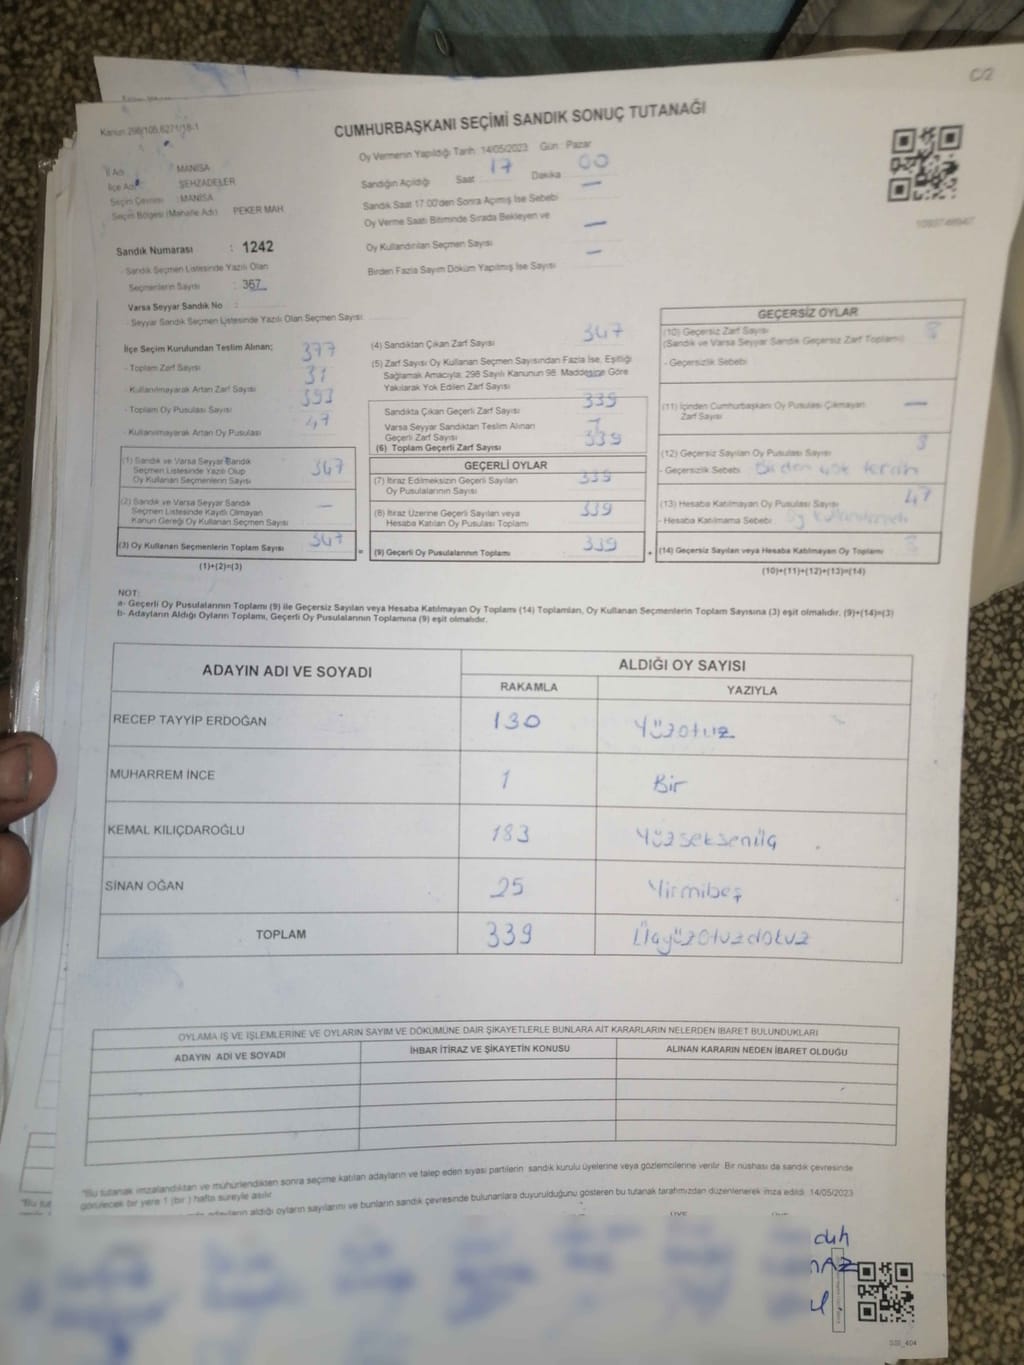 C/2
Kanun 298/105,6271/18-1
CUMHURBAŞKANI SEÇİMİ SANDIK SONUÇ TUTANAĞI
İl Adı : MANİSA
İlçe Adı : ŞEHZADELER
Seçim Çevresi : MANİSA
Seçim Bölgesi (Mahalle Adı) PEKER MAH
Sandık Numarası : 1242
- Sandık Seçmen Listesinde Yazılı Olan
Seçmenlerin Sayısı : 367
Varsa Seyyar Sandık No :
- Seyyar Sandık Seçmen Listesinde Yazılı Olan Seçmen Sayısı :
Oy Vermenin Yapıldığı Tarih: 14/05/2023 Gün : Pazar
Sandığın Açıldığı Saat 17 Dakika 00
Sandık Saat 17.00'den Sonra Açımış İse Sebebi —
Oy Verme Saati Bitiminde Sırada Bekleyen ve
Oy Kullandırılan Seçmen Sayısı —
Birden Fazla Sayım Döküm Yapılmış İse Sayısı —
İlçe Seçim Kurulundan Teslim Alınan;
- Toplam Zarf Sayısı 377
- Kullanılmayarak Artan Zarf Sayısı 31
- Toplam Oy Pusulası Sayısı 393
- Kullanılmayarak Artan Oy Pusulası 47
(1) Sandık ve Varsa Seyyar Sandık
Seçmen Listesinde Yazılı Olup
Oy Kullanan Seçmenlerin Sayısı 347
(2) Sandık ve Varsa Seyyar Sandık
Seçmen Listesinde Kayıtlı Olmayan
Kanun Gereği Oy Kullanan Seçmen Sayısı —
(3) Oy Kullanan Seçmenlerin Toplam Sayısı 347
(1)+(2)=(3)
(4) Sandıktan Çıkan Zarf Sayısı 347
(5) Zarf Sayısı Oy Kullanan Seçmen Sayısından Fazla İse, Eşitliği
Sağlamak Amacıyla, 298 Sayılı Kanunun 98. Maddesine Göre
Yakılarak Yok Edilen Zarf Sayısı
Sandıkta Çıkan Geçerli Zarf Sayısı 339
Varsa Seyyar Sandıktan Teslim Alınan
Geçerli Zarf Sayısı
(6) Toplam Geçerli Zarf Sayısı 339
GEÇERLİ OYLAR
(7) İtiraz Edilmeksizin Geçerli Sayılan
Oy Pusulalarının Sayısı 339
(8) İtiraz Üzerine Geçerli Sayılan veya
Hesaba Katılan Oy Pusulası Toplamı 339
= (9) Geçerli Oy Pusulalarının Toplamı 339 +
GEÇERSİZ OYLAR
(10) Geçersiz Zarf Sayısı
(Sandık ve Varsa Seyyar Sandık Geçersiz Zarf Toplamı) 8
- Geçersizlik Sebebi
(11) İçinden Cumhurbaşkanı Oy Pusulası Çıkmayan
Zarf Sayısı —
(12) Geçersiz Sayılan Oy Pusulası Sayısı 8
- Geçersizlik Sebebi Birden çok tercih
(13) Hesaba Katılmayan Oy Pusulası Sayısı 47
- Hesaba Katılmama Sebebi
(14) Geçersiz Sayılan veya Hesaba Katılmayan Oy Toplamı
(10)+(11)+(12)+(13)=(14)
NOT:
a- Geçerli Oy Pusulalarının Toplamı (9) ile Geçersiz Sayılan veya Hesaba Katılmayan Oy Toplamı (14) Toplamları, Oy Kullanan Seçmenlerin Toplam Sayısına (3) eşit olmalıdır. (9)+(14)=(3)
b- Adayların Aldığı Oyların Toplamı, Geçerli Oy Pusulalarının Toplamına (9) eşit olmalıdır.
ADAYIN ADI VE SOYADI ALDIĞI OY SAYISI
RAKAMLA YAZIYLA
RECEP TAYYİP ERDOĞAN 130 Yüzotuz
MUHARREM İNCE 1 Bir
KEMAL KILIÇDAROĞLU 183 Yüzseksenüç
SİNAN OĞAN 25 Yirmibeş
TOPLAM 339 Üçyüzotuzdokuz
OYLAMA İŞ VE İŞLEMLERİNE VE OYLARIN SAYIM VE DÖKÜMÜNE DAİR ŞİKAYETLERLE BUNLARA AİT KARARLARIN NELERDEN İBARET BULUNDUKLARI
ADAYIN ADI VE SOYADI İHBAR İTİRAZ VE ŞİKAYETİN KONUSU ALINAN KARARIN NEDEN İBARET OLDUĞU
"Bu tutanak imzalandıktan ve mühürlendikten sonra seçime katılan adayların ve talep eden siyasi partilerin sandık kurulu üyelerine veya gözlemcilerine verilir. Bir nüshası da sandık çevresinde
görülecek bir yere 1 (bir) hafta süreyle asılır.
adayların aldığı oyların sayılarını ve bunların sandık çevresinde bulunanlara duyurulduğunu gösteren bu tutanak tarafımızdan düzenlenerek imza edildi. 14/05/2023